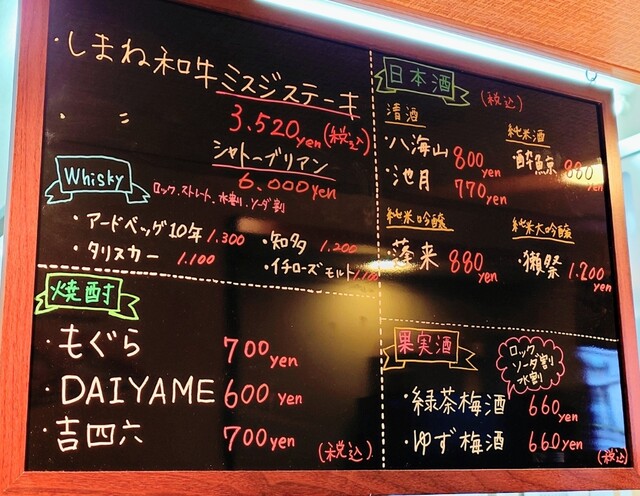 ・しまね和牛ミスジステーキ
3.520yen(税込)
・ 〃 シャトーブリアン
6.000yen
Whisky
ロック.ストレート.水割.ソーダ割
・アードベッグ10年1.300
・知多 1.200
・タリスカー 1.100
・イチローズモルト
焼酎
・もぐら 700yen
・DAIYAME 600yen
・吉四六 700yen
(税込)
日本酒
(税込)
清酒
・八海山 800yen
・池月 770yen
純米酒
・酔鯨 880yen
純米吟醸
・蓬来 880yen
純米大吟醸
・獺祭 1.200yen
果実酒
ロック
ソーダ割
水割
・緑茶梅酒 660yen
・ゆず梅酒 660yen
(税込)